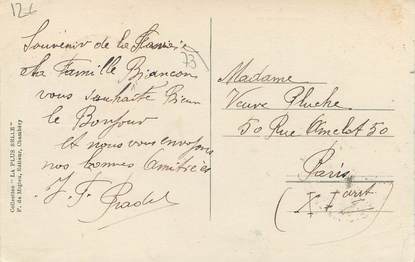 Souvenir de la
La Famille Biancon
vous souhaite Bien
le Bonjour
et nous vous envoyons
nos bonnes Amitiées
J. F. Pradel
73
Madame
Veuve Pluche
50 Rue Amelot 50
Paris
(XI arrt
Collection "LA PLUS BELLE"
F. de Miglos, Editeur, Chambéry